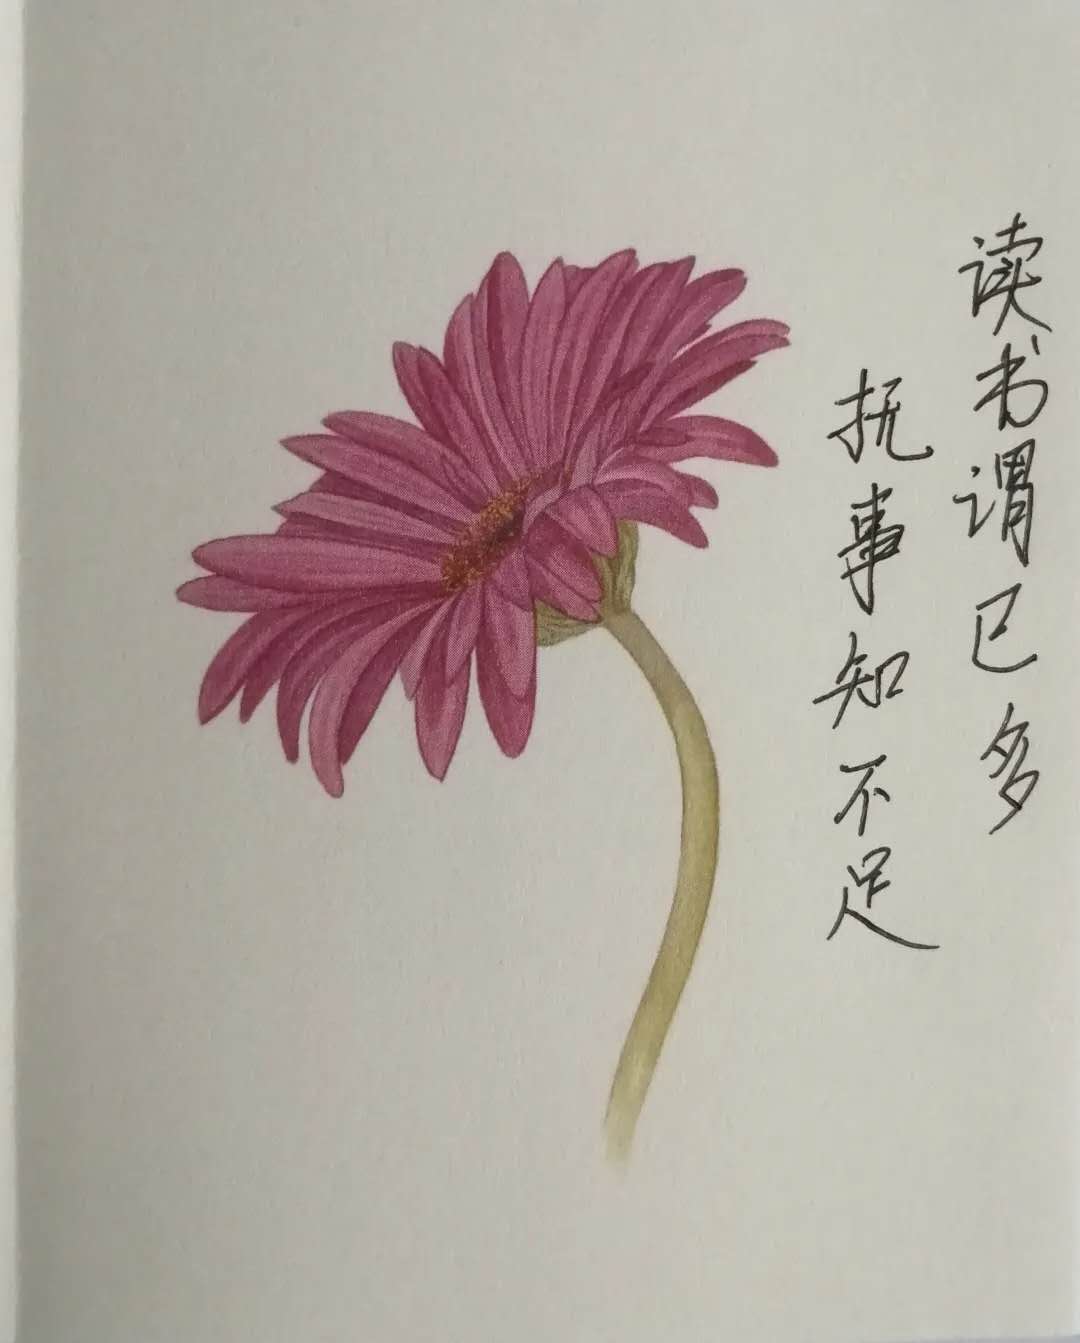 读书谓已多
抚事知不足